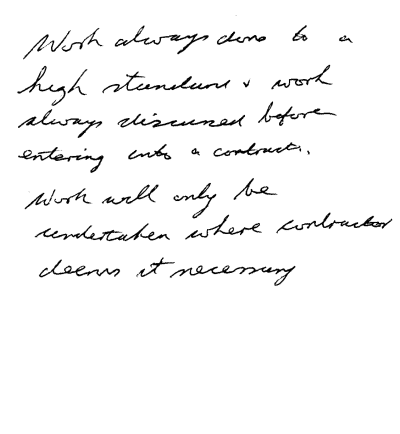 Work always done to a
high standard & work
always discussed before
entering into a contract.
Work will only be
undertaken where contractor
deems it necessary